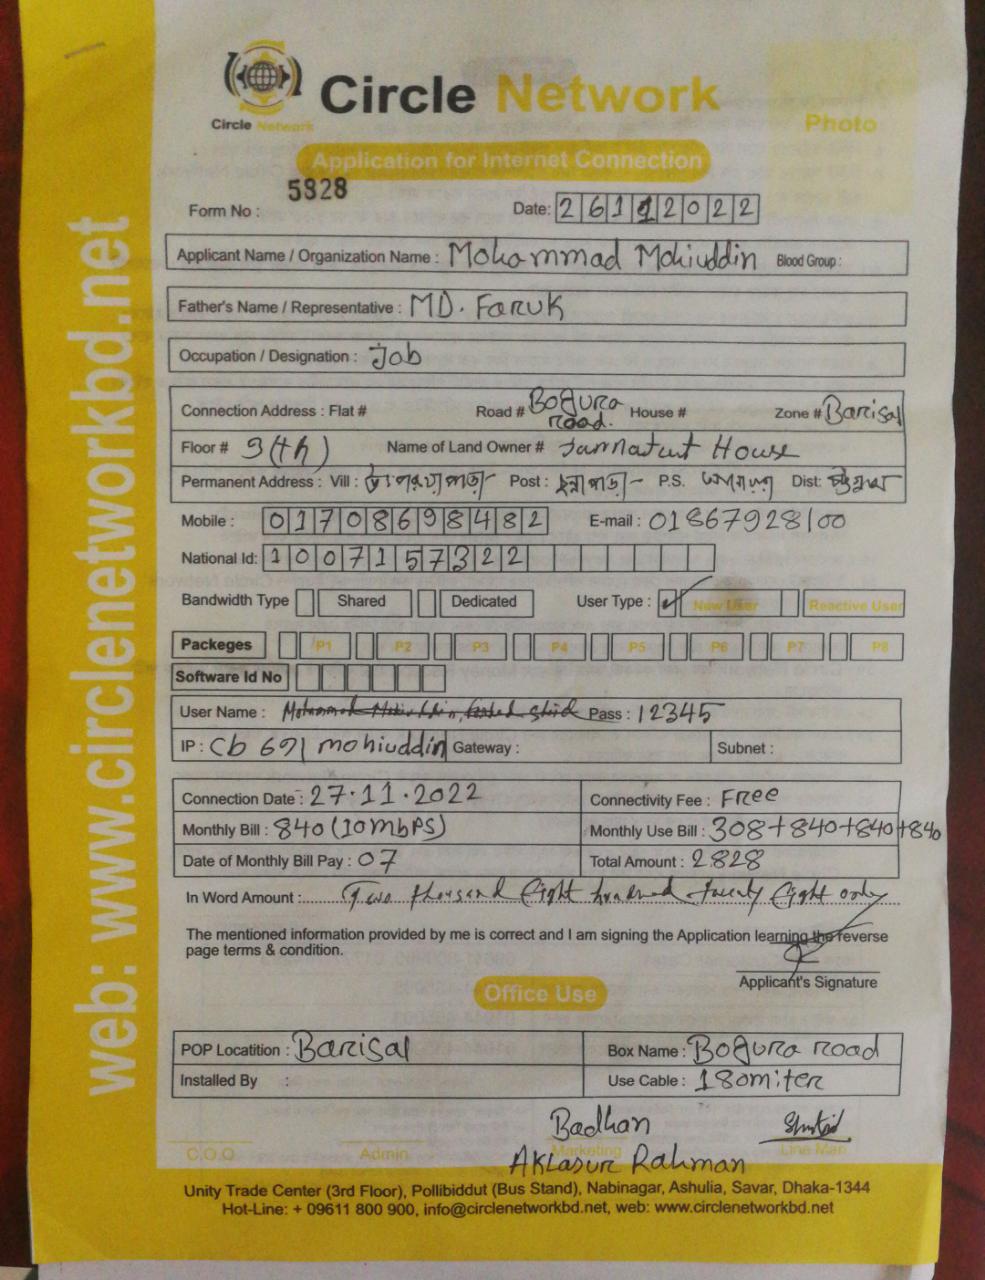 Circle Network
Circle Network
Photo
Application for Internet Connection
Form No : 5828 Date: 26112022
Applicant Name / Organization Name : Mohammad Mohiuddin Blood Group :
Father's Name / Representative : MD. Faruk
Occupation / Designation : Job
Connection Address : Flat # Road # Bogura road. House # Zone # Barisal
Floor # 3(th) Name of Land Owner # House
Permanent Address : Vill : Post : P.S. Dist:
Mobile : 01708698482 E-mail : 01867928100
National Id: 1007157322
Bandwidth Type Shared Dedicated User Type : ✓ New User Reactive User
Packeges P1 P2 P3 P4 P5 P6 P7 P8
Software Id No
User Name : Pass : 12345
IP : Cb 691 mohiuddin Gateway : Subnet :
Connection Date : 27.11.2022 Connectivity Fee : Free
Monthly Bill : 840 (10mbPS) Monthly Use Bill : 308+840+840+840
Date of Monthly Bill Pay : 07 Total Amount : 2828
In Word Amount : Two thousand Eight hundred twenty Eight only
The mentioned information provided by me is correct and I am signing the Application learning the reverse
page terms & condition.
Applicant's Signature
Office Use
POP Locatition : Barisal Box Name : Bogura road
Installed By : Use Cable : 180miter
Badhan
C.O.O Admin Marketing Line Man
Aklasur Rahman
Unity Trade Center (3rd Floor), Pollibiddut (Bus Stand), Nabinagar, Ashulia, Savar, Dhaka-1344
Hot-Line: + 09611 800 900, info@circlenetworkbd.net, web: www.circlenetworkbd.net
web: www.circlenetworkbd.net